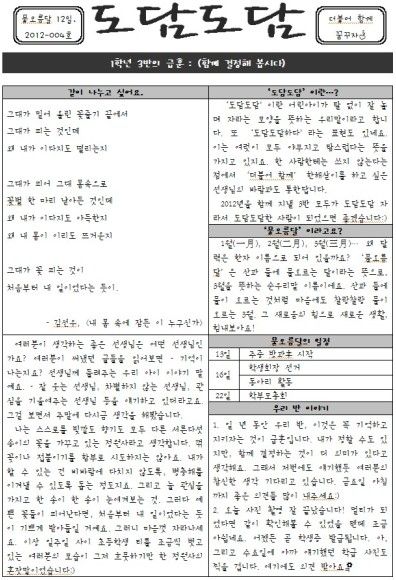 물오름달 12일.
2012-004호
도담도담
더불어 함께
꿈꾸자
1학년 3반의 급훈 : (함께 결정해 봅시다)
같이 나누고 싶어요.
그대가 밀어 올린 꽃줄기 끝에서
그대가 피는 것인데
왜 내가 이다지도 떨리는지
그대가 피어 그대 몸속으로
꽃벌 한 마리 날아든 것인데
왜 내가 이다지도 아득한지
왜 내 몸이 이리도 뜨거운지
그대가 꽃 피는 것이
처음부터 내 일이었다는 듯이.
- 김선우, (내 몸 속에 잠든 이 누구신가)
여러분이 생각하는 좋은 선생님은 어떤 선생님인
가요? 여러분이 써냈던 글들을 읽어보면 - 기억이
나는지요? 선생님께 들려주는 우리 아이 이야기 말
예요. - 잘 웃는 선생님, 차별하지 않는 선생님, 관
심을 기울여주는 선생님 등을 얘기하고 있더라고요.
그걸 보면서 주말에 다시금 생각을 해봤습니다.
나는 스스로를 빛깔도 향기도 모두 다른 서른다섯
송이의 꽃을 가꾸고 있는 정원사라고 생각합니다. 꺾
꽂이나 접붙이기를 함부로 시도하지는 않아요. 내가
할 수 있는 건 비바람에 다치지 않도록, 병충해를
이겨낼 수 있도록 돕는 정도지요. 그리고 늘 관심을
가지고 한 송이 한 송이 눈여겨보는 것. 그러다 예
쁜 꽃들이 피어난다면, 처음부터 내 일이었다는 듯
이 기쁘게 받아들일 거예요. 그러니 마음껏 자라나세
요. 이상 일주일 사이 초등학생 티를 조금씩 벗고
있는 여러분의 모습이 그저 흐뭇하기만 한 정원사의
혼잣말이었습니다:)
'도담도담' 이란…?
'도담도담' 이란 어린아이가 탈 없이 잘 놀
며 자라는 모양을 뜻하는 우리말이라고 합니
다. 또 '도담도담하다' 라는 표현도 있네요.
이는 여럿이 모두 야무지고 탐스럽다는 뜻을
가지고 있지요. 한 사람한테는 쓰지 않는다는
점에서 '더불어 함께' 한해살이를 하고 싶은
선생님의 바람과도 통한답니다.
2012년을 함께 지낼 3반 모두가 도담도담 자
라서 도담도담한 사람이 되었으면 좋겠습니다:)
'물오름달' 이라고요?
1월(一月), 2월(二月), 3월(三月)… 왜 달
력은 한자 이름으로 되어 있을까요? '물오름
달' 은 산과 들에 물오르는 달이라는 뜻으로,
3월을 뜻하는 순우리말 이름이에요. 산과 들에
물이 오르는 것처럼 마음에도 찰랑찰랑 물이
오르는 3월, 그 새로움의 힘으로 새로운 생활,
힘내보아요!
물오름달의 일정
13일 주중 방과후 시작
16일 학생회장 선거
동아리 활동
22일 학부모총회
우리 반 이야기
1. 일 년 동안 우리 반, 이것은 꼭 기억하고
지키자는 것이 급훈입니다. 내가 정할 수도 있
지만, 함께 결정하는 것이 더 의미가 있다고
생각해요. 그래서 저번에도 얘기했듯 여러분의
참신한 생각 기다리고 있습니다. 금요일 아침
까지 좋은 의견들 많이 내주세요:)
2. 오늘 사진 촬영 잘 끝났습니다! 멀티가 되
었다면 같이 확인해볼 수 있었을 텐데 조금
아쉽네요. 어쨌든 곧 학생증 발급됩니다. 아,
그리고 수요일에 아까 얘기했던 학급 사진도
찍을 겁니다. 얘기에도 의견 받아요?